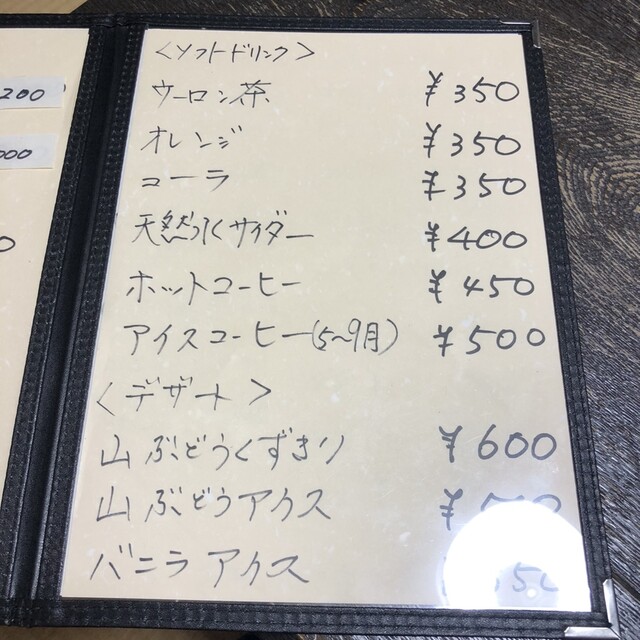 200
000
0
<ソフトドリンク>
ウーロン茶 ¥350
オレンジ ¥350
コーラ ¥350
天然水サイダー ¥400
ホットコーヒー ¥450
アイスコーヒー(5~9月) ¥500
<デザート>
山ぶどうくずきり ¥600
山ぶどうアイス ¥
バニラアイス 50